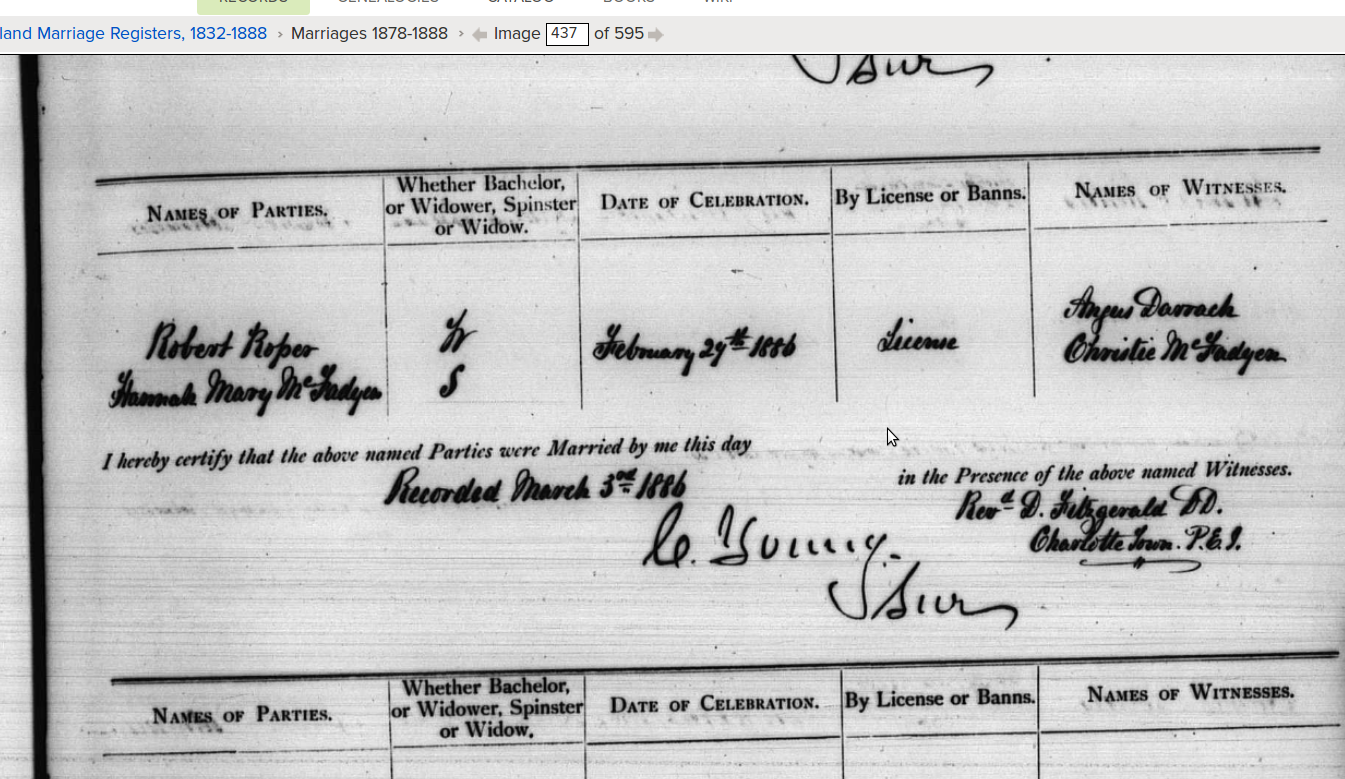 RECORDS GENEALOGIES CATALOG BOOKS WIKI
land Marriage Registers, 1832-1888 › Marriages 1878-1888 › Image 437 of 595
NAMES OF PARTIES.
Whether Bachelor,
or Widower, Spinster
or Widow.
DATE OF CELEBRATION.
By License or Banns.
NAMES OF WITNESSES.
Robert Roper
Hannah Mary McFadyen
W
S
February 29th 1886
License
Angus Darrach
Christie McFadyen
I hereby certify that the above named Parties were Married by me this day
Recorded March 3rd 1886
in the Presence of the above named Witnesses.
Revd D. Fitzgerald DD.
Charlotte Town. P.E.I.
C. Young.
Surr
NAMES OF PARTIES.
Whether Bachelor,
or Widower, Spinster
or Widow.
DATE OF CELEBRATION.
By License or Banns.
NAMES OF WITNESSES.